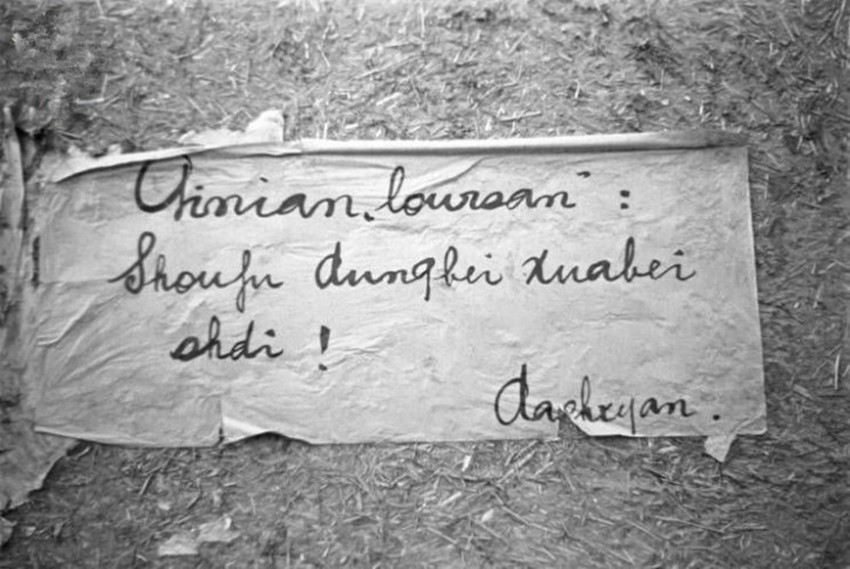 Ginian „loursan" :
Shoufu dungbei xuabei
shdi !
daehxyan.